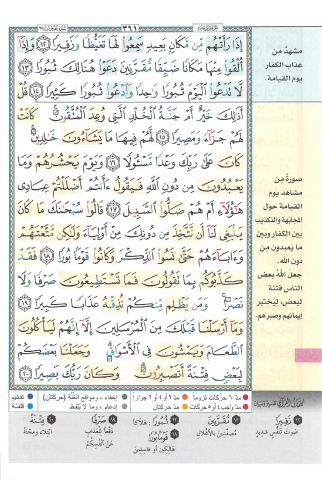 ٣٦١
إِذَا رَأَتْهُم مِّن مَّكَانٍ بَعِيدٍ سَمِعُوا۟ لَهَا تَغَيُّظًا وَزَفِيرًا ١٢ وَإِذَآ
أُلْقُوا۟ مِنْهَا مَكَانًا ضَيِّقًا مُّقَرَّنِينَ دَعَوْا۟ هُنَالِكَ ثُبُورًا ١٣
لَّا تَدْعُوا۟ ٱلْيَوْمَ ثُبُورًا وَٰحِدًا وَٱدْعُوا۟ ثُبُورًا كَثِيرًا ١٤ قُلْ
أَذَٰلِكَ خَيْرٌ أَمْ جَنَّةُ ٱلْخُلْدِ ٱلَّتِى وُعِدَ ٱلْمُتَّقُونَ كَانَتْ
لَهُمْ جَزَآءً وَمَصِيرًا ١٥ لَّهُمْ فِيهَا مَا يَشَآءُونَ خَٰلِدِينَ
كَانَ عَلَىٰ رَبِّكَ وَعْدًا مَّسْـُٔولًا ١٦ وَيَوْمَ يَحْشُرُهُمْ وَمَا
يَعْبُدُونَ مِن دُونِ ٱللَّهِ فَيَقُولُ ءَأَنتُمْ أَضْلَلْتُمْ عِبَادِى
هَٰٓؤُلَآءِ أَمْ هُمْ ضَلُّوا۟ ٱلسَّبِيلَ ١٧ قَالُوا۟ سُبْحَٰنَكَ مَا كَانَ
يَنۢبَغِى لَنَآ أَن نَّتَّخِذَ مِن دُونِكَ مِنْ أَوْلِيَآءَ وَلَٰكِن مَّتَّعْتَهُمْ
وَءَابَآءَهُمْ حَتَّىٰ نَسُوا۟ ٱلذِّكْرَ وَكَانُوا۟ قَوْمًۢا بُورًا ١٨ فَقَدْ
كَذَّبُوكُم بِمَا تَقُولُونَ فَمَا تَسْتَطِيعُونَ صَرْفًا وَلَا
نَصْرًا وَمَن يَظْلِم مِّنكُمْ نُذِقْهُ عَذَابًا كَبِيرًا ١٩
وَمَآ أَرْسَلْنَا قَبْلَكَ مِنَ ٱلْمُرْسَلِينَ إِلَّآ إِنَّهُمْ لَيَأْكُلُونَ
ٱلطَّعَامَ وَيَمْشُونَ فِى ٱلْأَسْوَاقِ وَجَعَلْنَا بَعْضَكُمْ
لِبَعْضٍ فِتْنَةً أَتَصْبِرُونَ وَكَانَ رَبُّكَ بَصِيرًا ٢٠
مشهدٌ من
عذاب الكفار
يوم القيامة.
صورةٌ من
مشاهد يوم
القيامة حول
المجابهة والتكذيب
بين الكفار وبين
ما يعبدون من
دون الله.
جعل اللهُ بعضَ
الناس فتنة
لبعض ليختبر
إيمانهم وصبرهم.
مدّ ٦ حركات لزوماً
مدّ ٢ أو ٤ أو ٦ جوازاً
إخفاء، ومواقع الغُنَّة (حركتان)
تفخيم
مدّ واجب ٤ أو ٥ حركات
مدّ حركتان
إدغام، وما لا يُلفظ
قلقلة
زَفِيرًا
صوت تنفّس شديد
مُقَرَّنِينَ
مُصَفَّدين بالأغلال
ثُبُورًا: هلاكًا
قَوْمًا بُورًا
هالكين أو فاسدين
صَرْفًا
دفعًا للعذاب
عن أنفسكم
فِتْنَةً
ابتلاء ومحنة